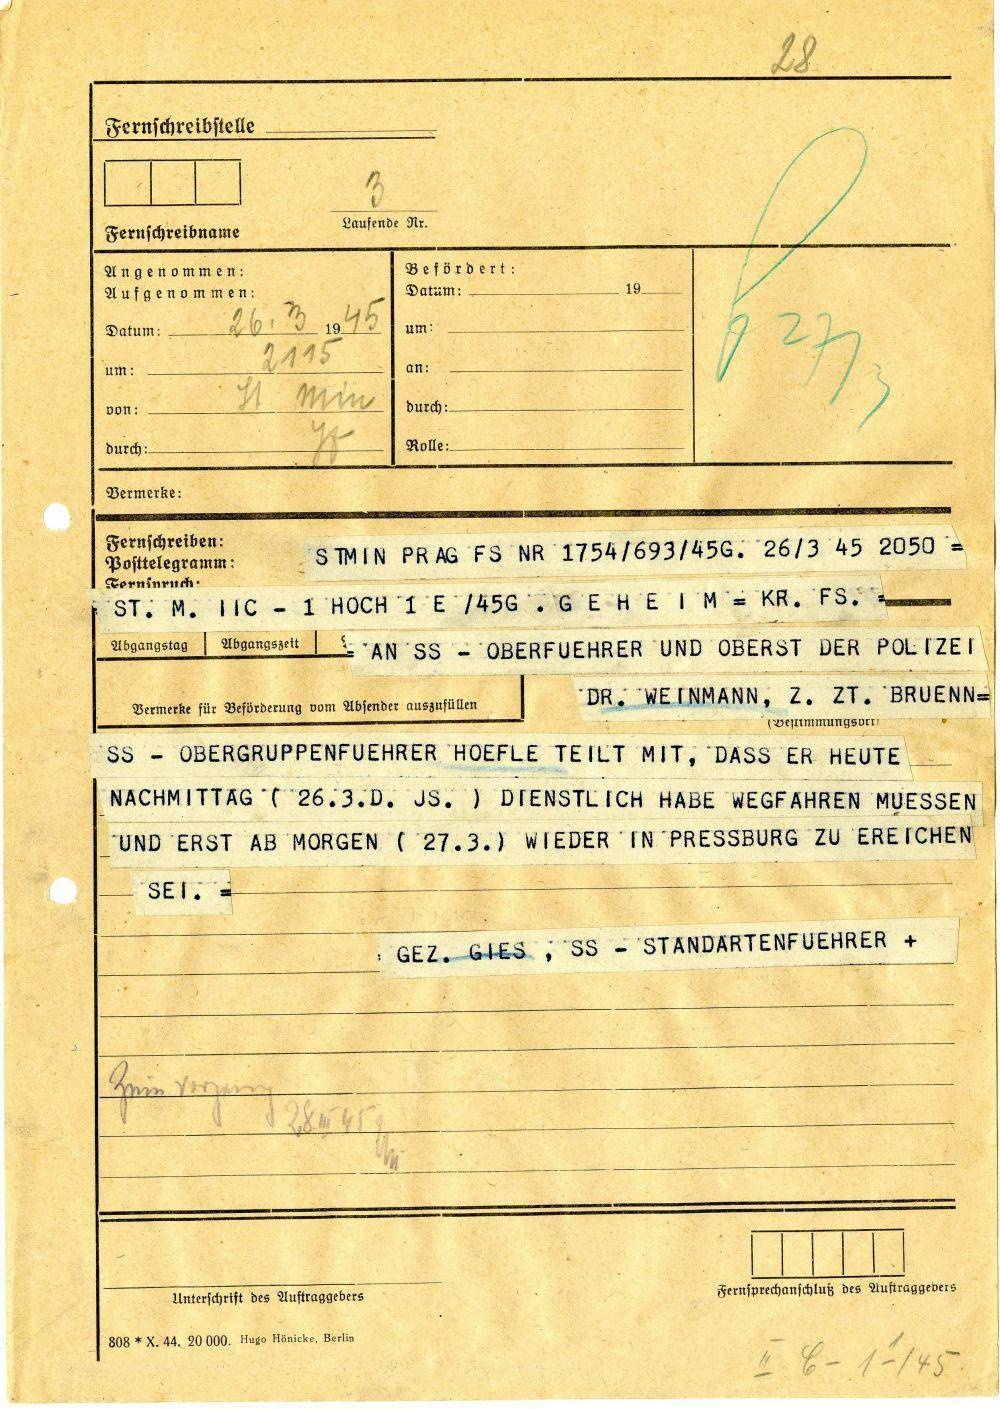 28
Fernschreibstelle
3
Laufende Nr.
Fernschreibname
Angenommen:
Aufgenommen:
Datum: 26. 3 1945
um: 2115
von: St Min
durch:
Befördert:
Datum: 19
um:
an:
durch:
Rolle:
27/3
Vermerke:
Fernschreiben:
Posttelegramm:
Fernspruch:
STMIN PRAG FS NR 1754/693/45G. 26/3 45 2050 =
ST. M. IIC - 1 HOCH 1 E /45G . G E H E I M = KR. FS. =
Abgangstag Abgangszeit
= AN SS - OBERFUEHRER UND OBERST DER POLIZEI
DR. WEINMANN, Z. ZT. BRUENN=
Vermerke für Beförderung vom Absender auszufüllen
(Bestimmungsort)
SS - OBERGRUPPENFUEHRER HOEFLE TEILT MIT, DASS ER HEUTE
NACHMITTAG ( 26.3.D. JS. ) DIENSTLICH HABE WEGFAHREN MUESSEN
UND ERST AB MORGEN ( 27.3.) WIEDER IN PRESSBURG ZU EREICHEN
SEI. =
: GEZ. GIES , SS - STANDARTENFUEHRER +
Zum Vorgang
28 III 45
Unterschrift des Auftraggebers
Fernsprechanschluß des Auftraggebers
808 * X. 44. 20 000. Hugo Hönicke, Berlin
II C - 1 1 /45